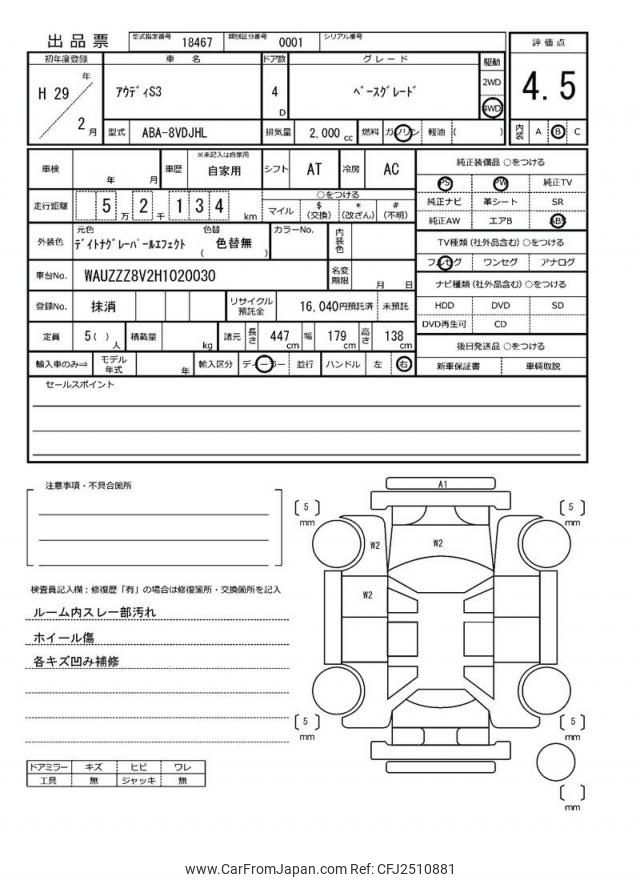 出品票 型式指定番号 18467 類別区分番号 0001 シリアル番号
評価点
4.5
内装 A B C
初年度登録 車名 ドア数 グレード 駆動
H 29 年 2 月 アウディS3 4 D ベースグレード 2WD 4WD
型式 ABA-8VDJHL 排気量 2,000 cc 燃料 ガソリン 軽油 ( )
車検 年 月 車歴 ※未記入は自家用 自家用 シフト AT 冷房 AC
走行距離 5 万 2 千 1 3 4 km
○をつける
マイル $ (交換) * (改ざん) # (不明)
外装色 元色 デイトナグレーパールエフェクト 色替 色替無 ( ) カラーNo. 内装色
車台No. WAUZZZ8V2H1020030 名変期限 月 日
登録No. 抹消 リサイクル預託金 16,040円預託済 未預託
定員 5( ) 人 積載量 kg 諸元 長さ 447 cm 幅 179 cm 高さ 138 cm
輸入車のみ⇒ モデル年式 年 輸入区分 ディーラー 並行 ハンドル 左 右
純正装備品 ○をつける
PS PW 純正TV
純正ナビ 革シート SR
純正AW エアB ABS
TV種類 (社外品含む) ○をつける
フルセグ ワンセグ アナログ
ナビ種類 (社外品含む) ○をつける
HDD DVD SD
DVD再生可 CD
後日発送品 ○をつける
新車保証書 車輌取説
セールスポイント
注意事項・不具合箇所
検査員記入欄：修復歴「有」の場合は修復箇所・交換箇所を記入
ルーム内スレ一部汚れ
ホイール傷
各キズ凹み補修
ドアミラー キズ ヒビ ワレ
工具 無 ジャッキ 無
A1
5 mm
5 mm
W2
W2
W2
5 mm
5 mm
mm
www.CarFromJapan.com Ref: CFJ2510881